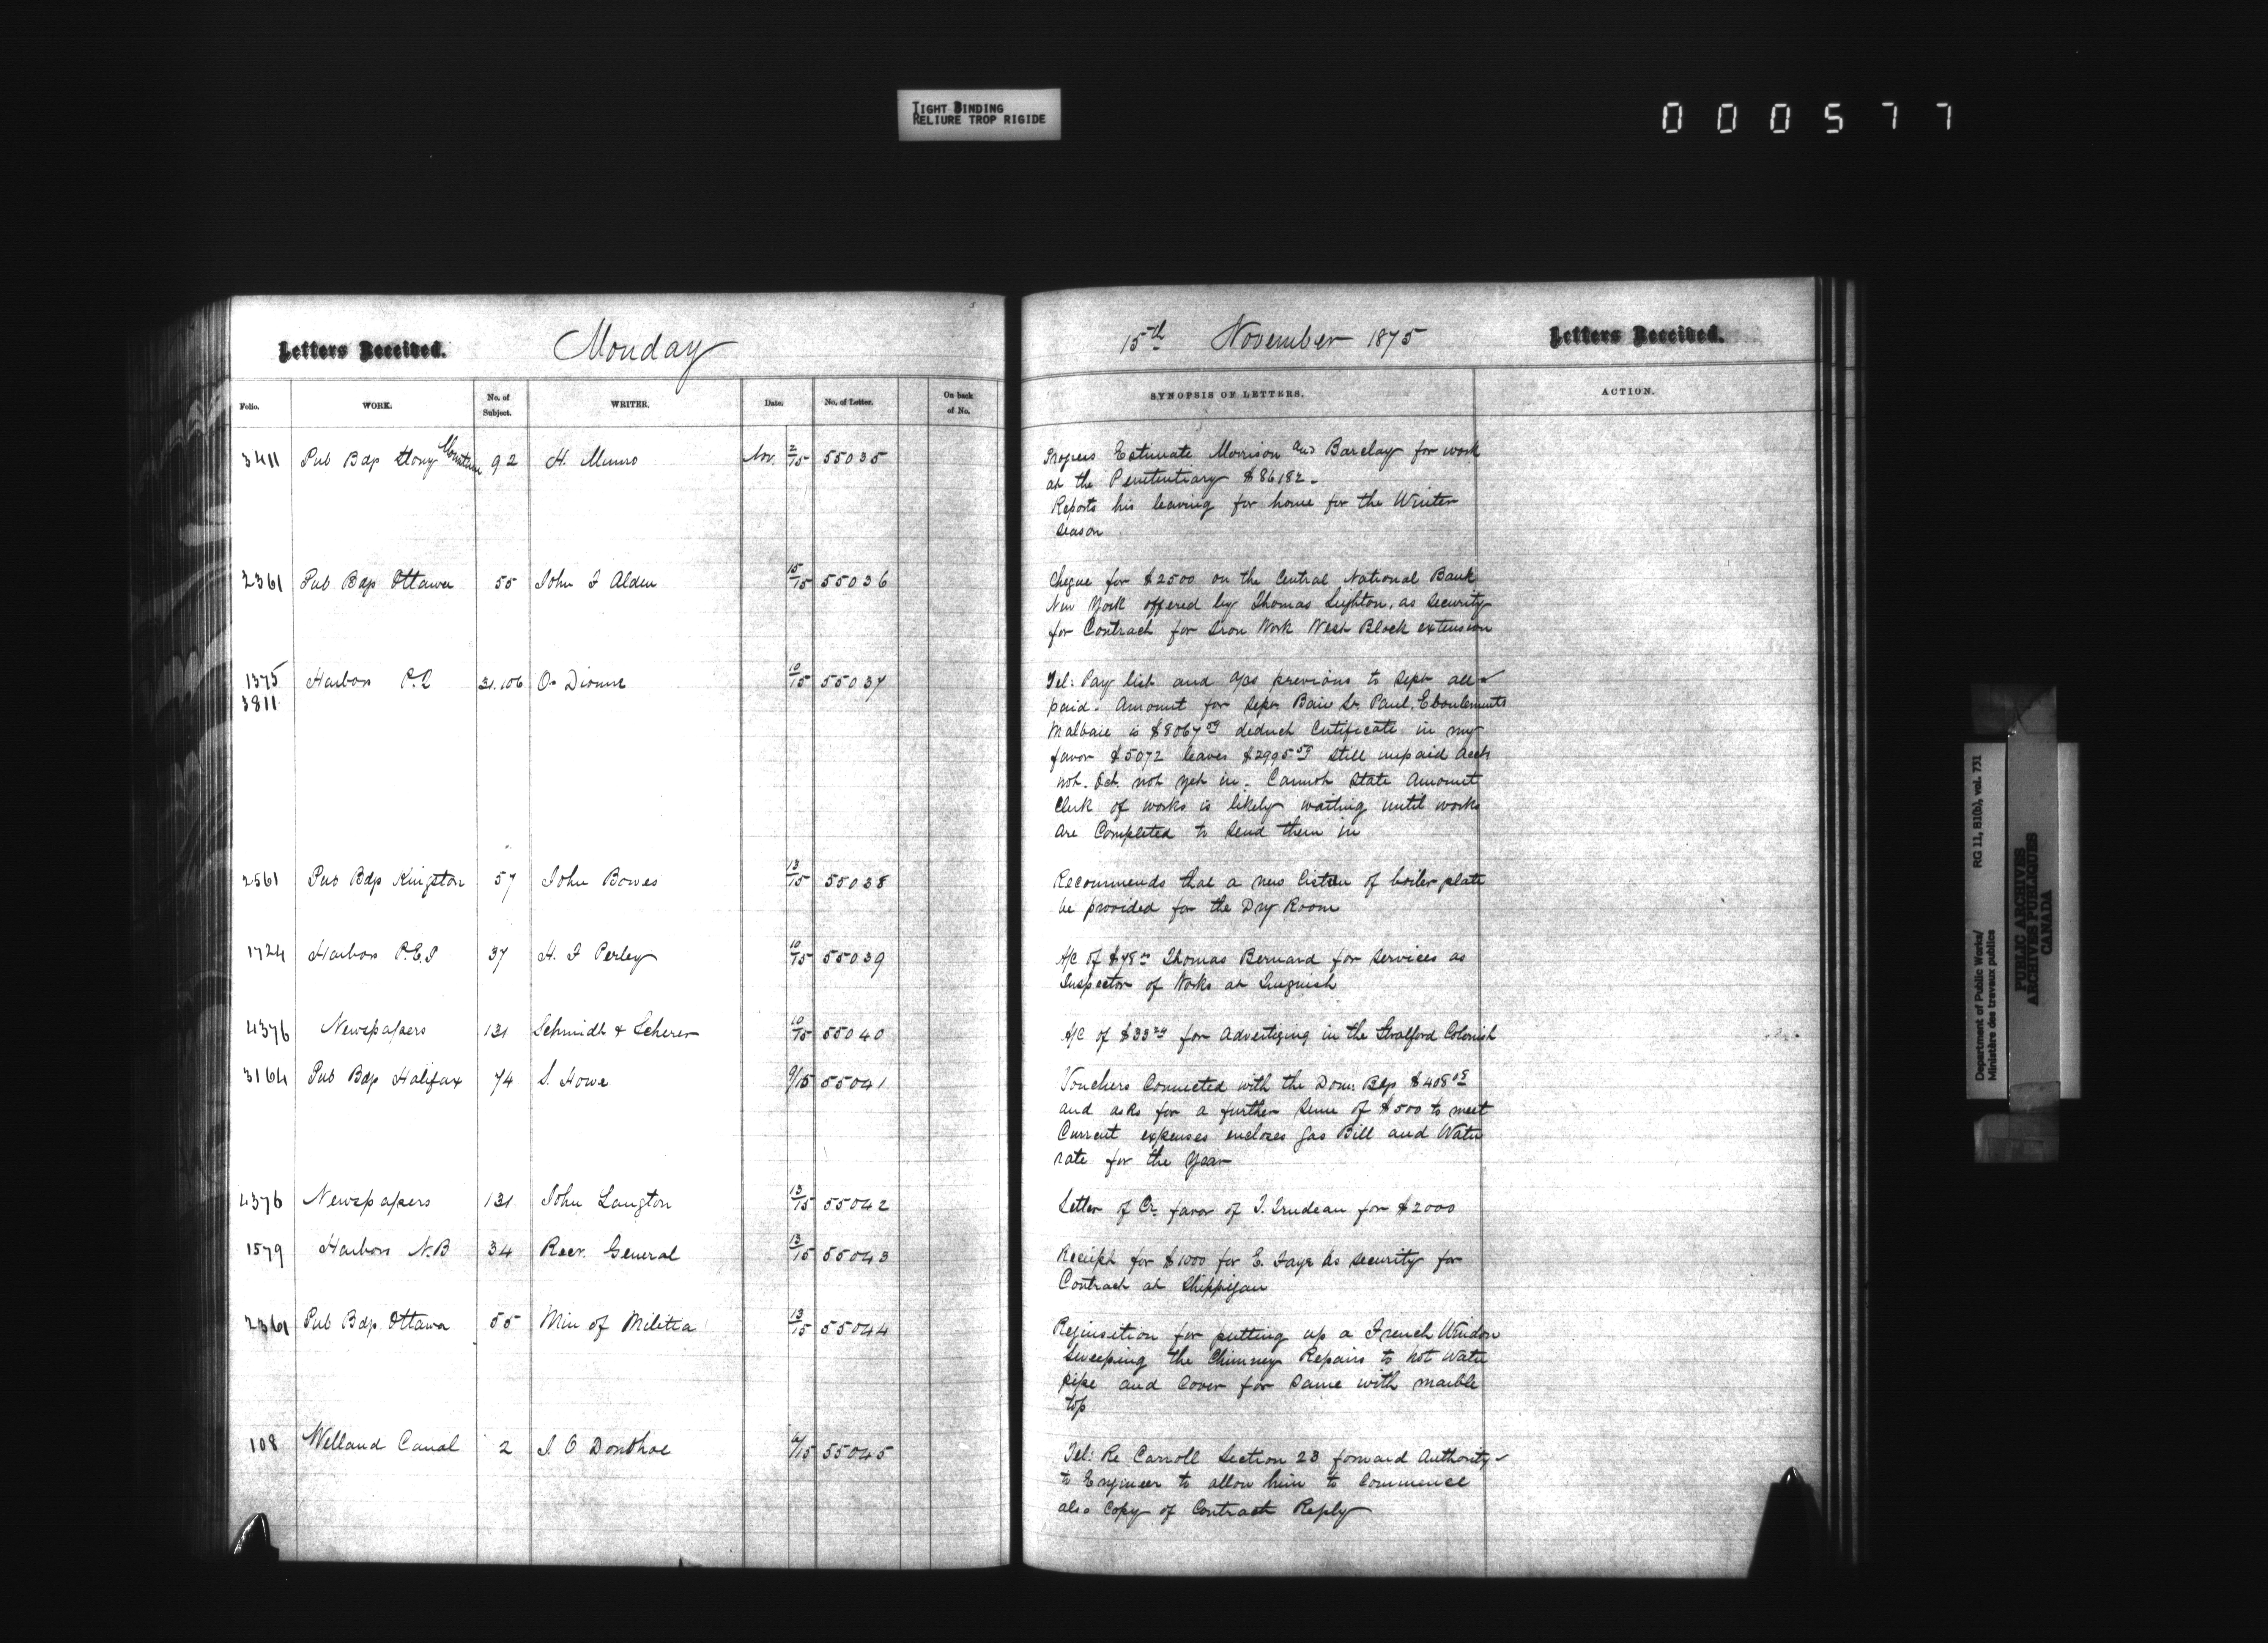 TIGHT BINDING
RELIURE TROP RIGIDE
000577
Letters Received. Monday
Folio. WORK. No. of Subject. WRITER. Date. No. of Letter. On back of No.
3411 Pub Bdgs Stony Mountain 92 H. Munro Nov. 2/15 55035
2361 Pub Bdgs Ottawa 55 John F Alden 15/15 55036
1375 Harbors P.Q 31.106 O. Dionne 10/15 55037
3811
2561 Pub Bdgs Kingston 57 John Bowes 13/15 55038
1724 Harbors P.E.I 37 H. F Perley 10/15 55039
4376 Newspapers 131 Schmidt & Scherer 10/15 55040
3164 Pub Bdgs Halifax 74 S. Howe 9/15 55041
4376 Newspapers 131 John Langton 13/15 55042
1579 Harbors N.B 34 Recr. General 13/15 55043
2361 Pub Bdgs Ottawa 55 Min of Militia 13/15 55044
108 Welland Canal 2 J. O Donohoe /15 55045
15th November 1875 Letters Received.
SYNOPSIS OF LETTERS. ACTION.
Progress Estimate Morrison and Barclay for work
at the Penitentiary $86182.
Reports his leaving for home for the Winter
season
Cheque for $2500 on the Central National Bank
New York offered by Thomas Leighton, as security
for Contract for Iron Work West Block extension
Tel: Pay list and a/cs previous to Sept all
paid. Amount for Sepr Baie St. Paul, Eboulements
Malbaie is $8067 59 deduct Certificate in my
favor $5072 leaves $2995 59 still unpaid Accts
not. Oct. not yet in. Cannot State Amount
Clerk of works is likely waiting until works
are Completed to send them in
Recommends that a new Cistern of boiler plate
be provided for the Dry Room
A/c of $48 Thomas Bernard for services as
Inspector of Works at Tinguish
A/c of $33 for Advertizing in the Stratford Colonist
Vouchers Connected with the Dom. Bdgs $408 05
and asks for a further sum of $500 to meet
Current expenses encloses Gas Bill and Water
rate for the Year
Letter of Cr. favor of T. Trudeau for $2000
Receipt for $1000 for E. Faye As security for
Contract at Shippigan
Requisition for putting up a French Window
Sweeping the Chimney Repairs to hot water
pipe and Cover for same with marble
top
Tel: Re Carroll Section 23 forward Authority
to Engineer to allow him to Commence
also Copy of Contract Reply
Department of Public Works/ RG 11, B1(b), vol. 731
Ministère des travaux publics
PUBLIC ARCHIVES
ARCHIVES PUBLIQUES
CANADA